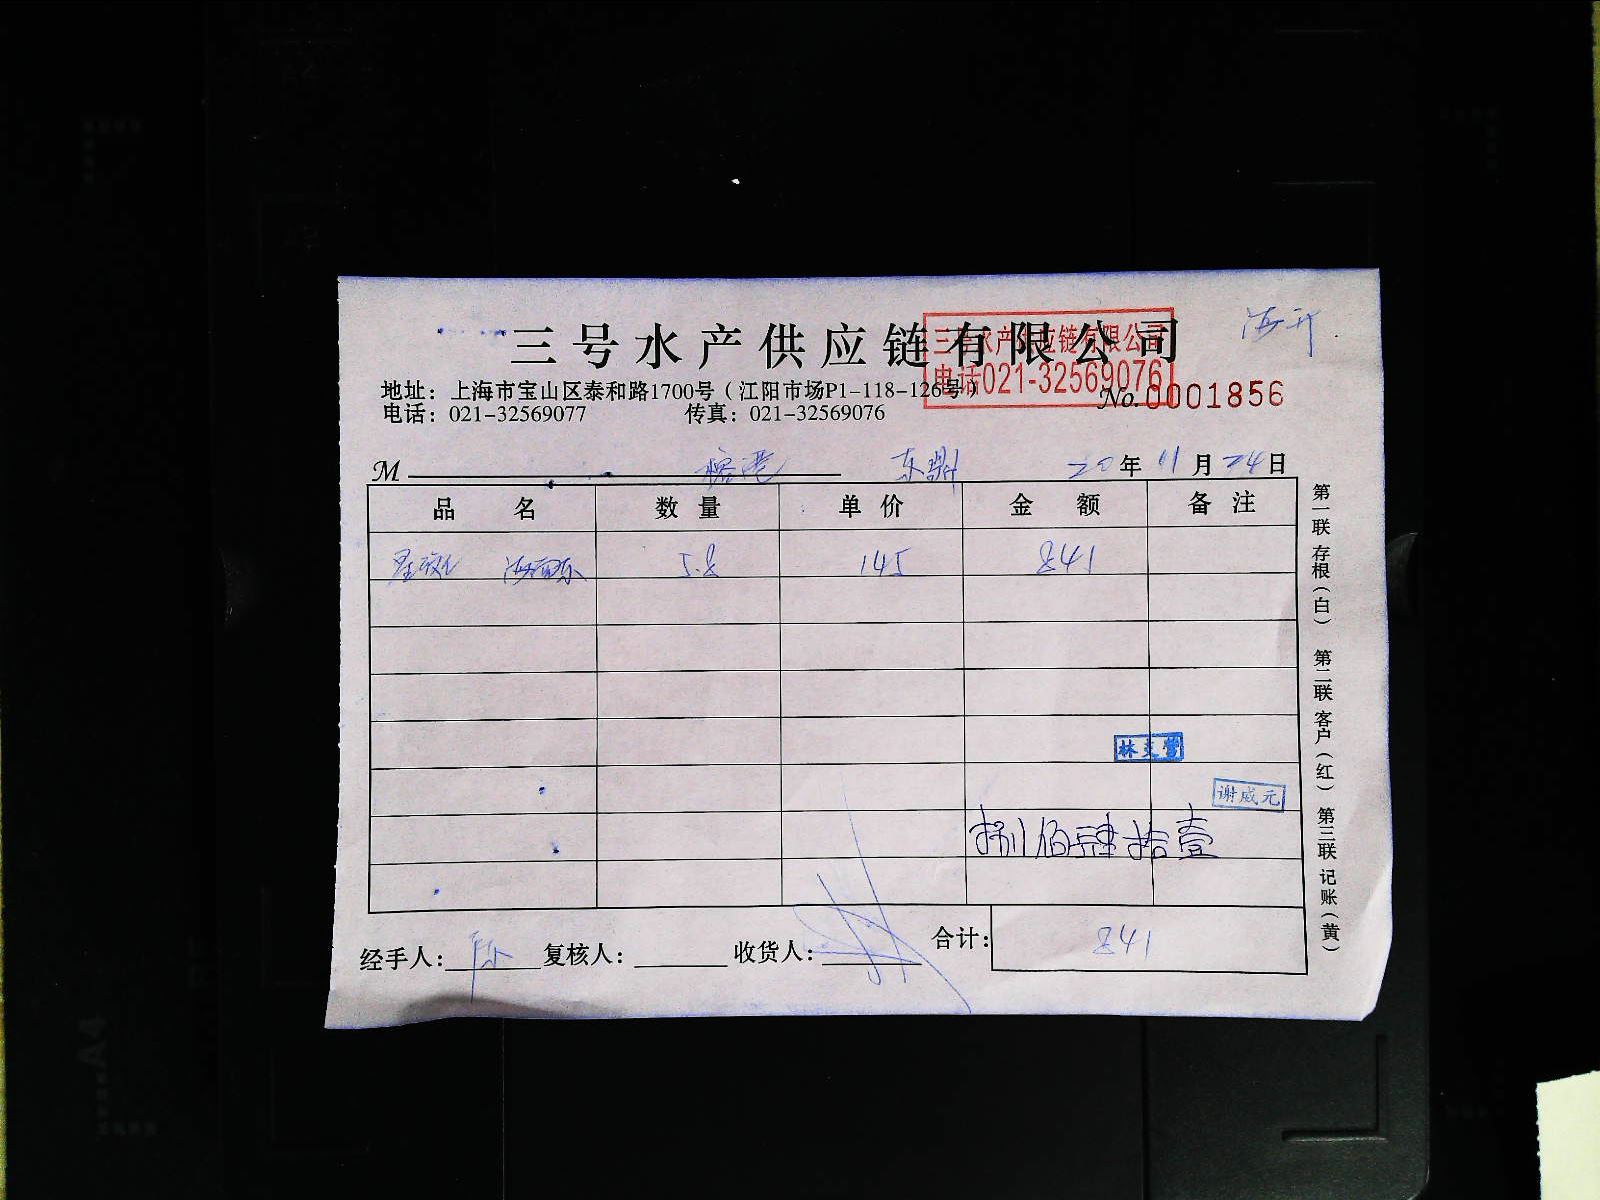 三号水产供应链有限公司
三号水产供应链有限公司
电话021-32569076
地址：上海市宝山区泰和路1700号（江阳市场P1-118-126号）
电话：021-32569077 传真：021-32569076
No.0001856
M 榕港 东鼎 20年11月24日
品名 数量 单价 金额 备注
5.8 145 841
林 营
谢威元
捌佰肆拾壹
经手人：陈 复核人： 收货人： 合计：841
第一联存根（白） 第二联客户（红） 第三联记账（黄）